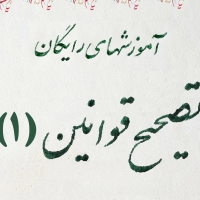 آموزشهای رایگان
تصحیح قوانین (۱)